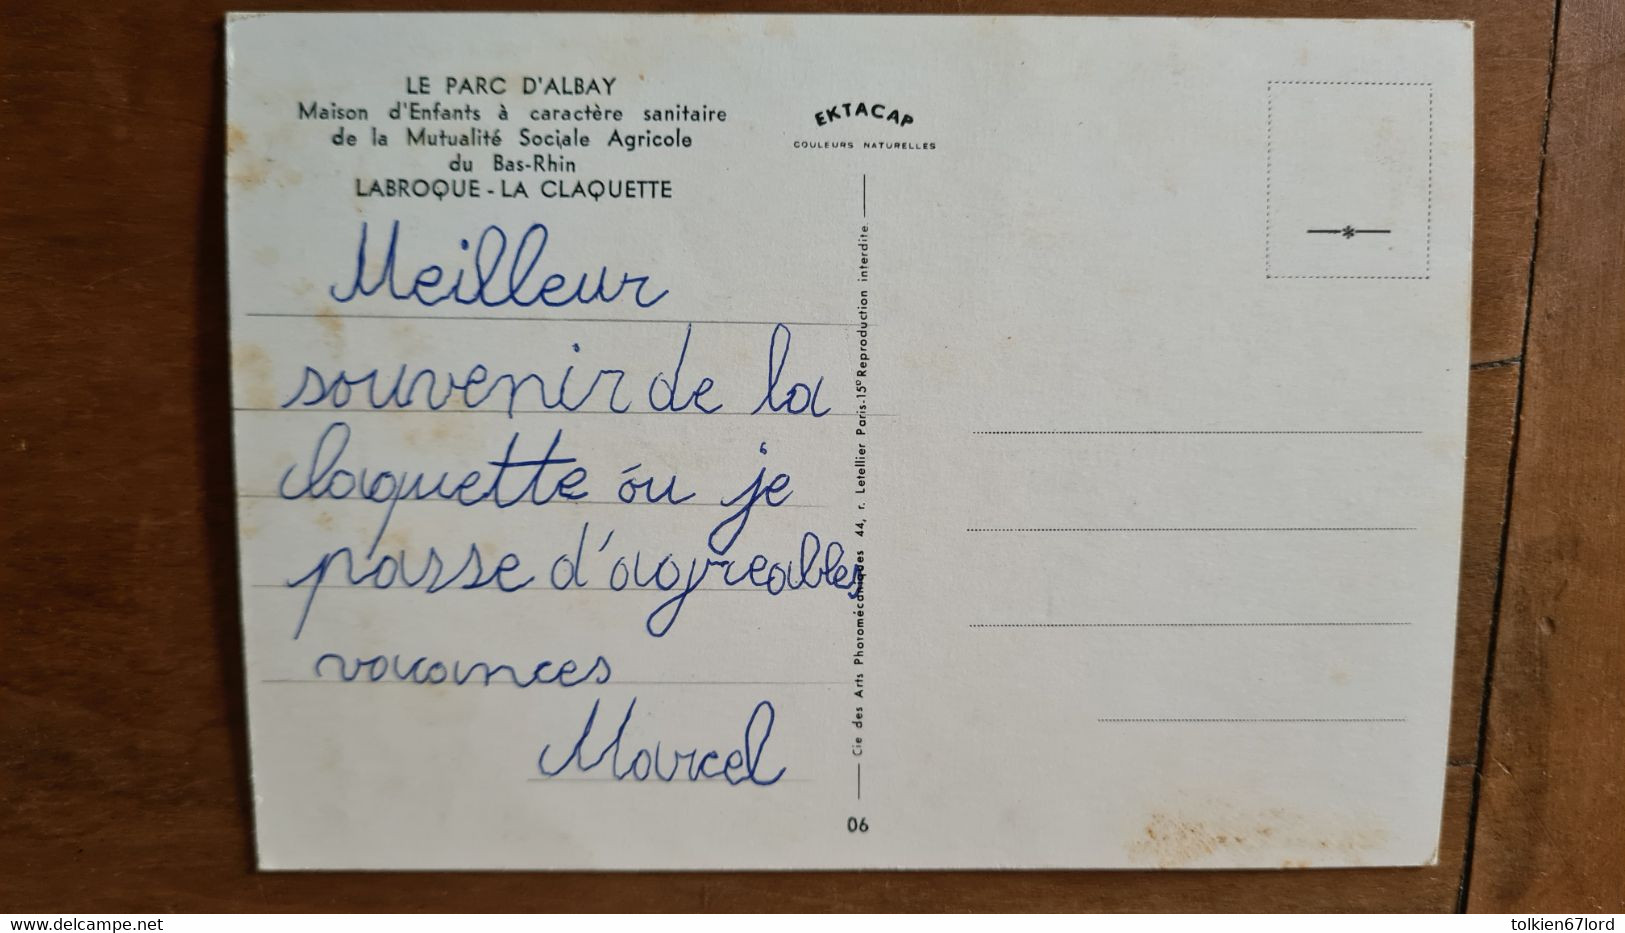 LE PARC D'ALBAY
Maison d'Enfants à caractère sanitaire
de la Mutualité Sociale Agricole
du Bas-Rhin
LABROQUE - LA CLAQUETTE
Meilleur
souvenir de la
claquette óu je
passe d'agreables
vacances
Marcel
EKTACAP
COULEURS NATURELLES
Cie des Arts Photomécaniques 44, r. Letellier Paris-15º Reproduction interdite
06
delcampe.net
tolkien67lord